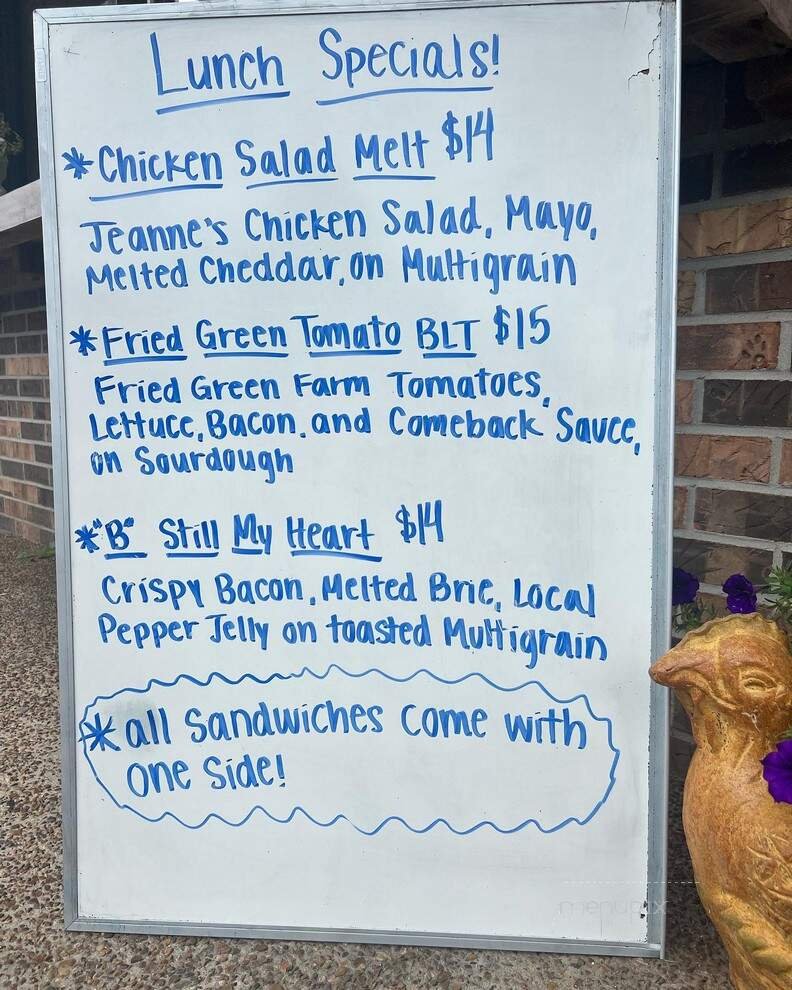 Lunch Specials!
*Chicken Salad Melt $14
Jeanne's Chicken Salad, Mayo,
Melted Cheddar, on Multigrain
*Fried Green Tomato BLT $15
Fried Green Farm Tomatoes,
Lettuce, Bacon, and Comeback Sauce,
on Sourdough
*"B" Still My Heart $14
Crispy Bacon, Melted Brie, Local
Pepper Jelly on toasted Multigrain
*all Sandwiches come with
one side!
menupix